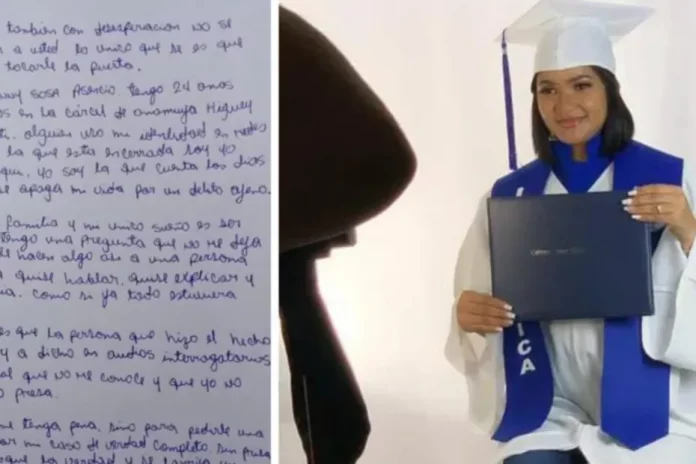 también con desesperación no se
a usted lo unico que se es que
tocarle la puerta.
sosa Asencio tengo 24 años
en la cárcel de anamuya Higuey
alguien uso mi identidad en redes
la que esta encerrada soy yo
yo soy la que cuenta los dias
se apaga mi vida por un delito ajeno.
familia y mi unico sueño es ser
tengo una pregunta que no me deja
le hacen algo asi a una persona
quise hablar, quise explicar y
como si ya todo estuviera
es que la persona que hizo el hecho
y a dicho en audios interrogatorios
al que no me conoce y que yo no
presa.
tenga pena, sino para pedirle una
mi caso de verdad completo, sin
que la verdad y
ICA